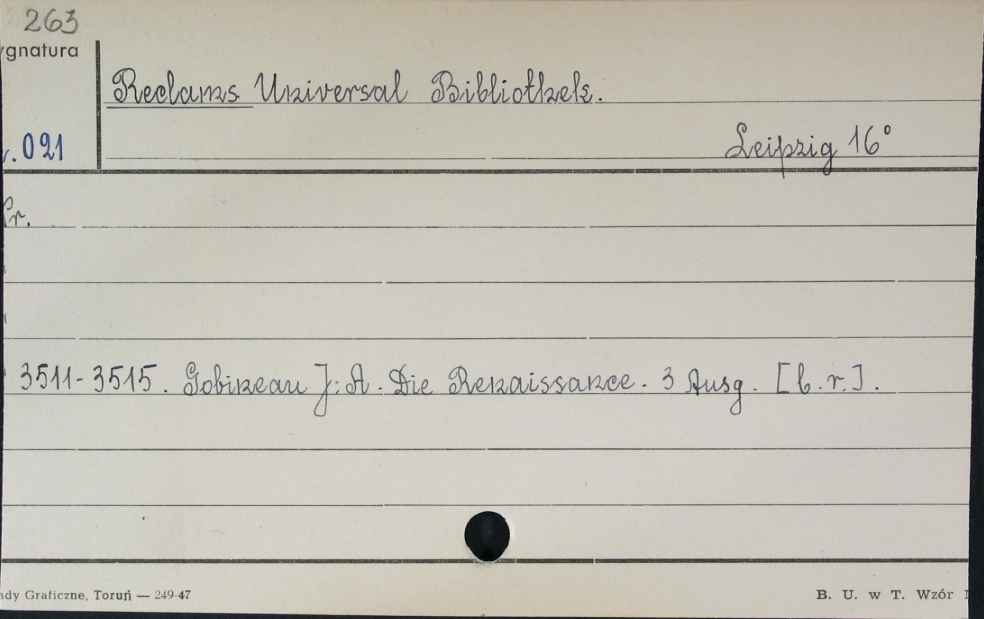 263
ygnatura
Reclams Universal Bibliothek.
. 021
Leipzig 16°
r.
3511-3515. Gobineau J: A. Die Renaissance. 3 Ausg. [b.r.].
dy Graficzne, Toruń — 249-47
B. U. w T. Wzór